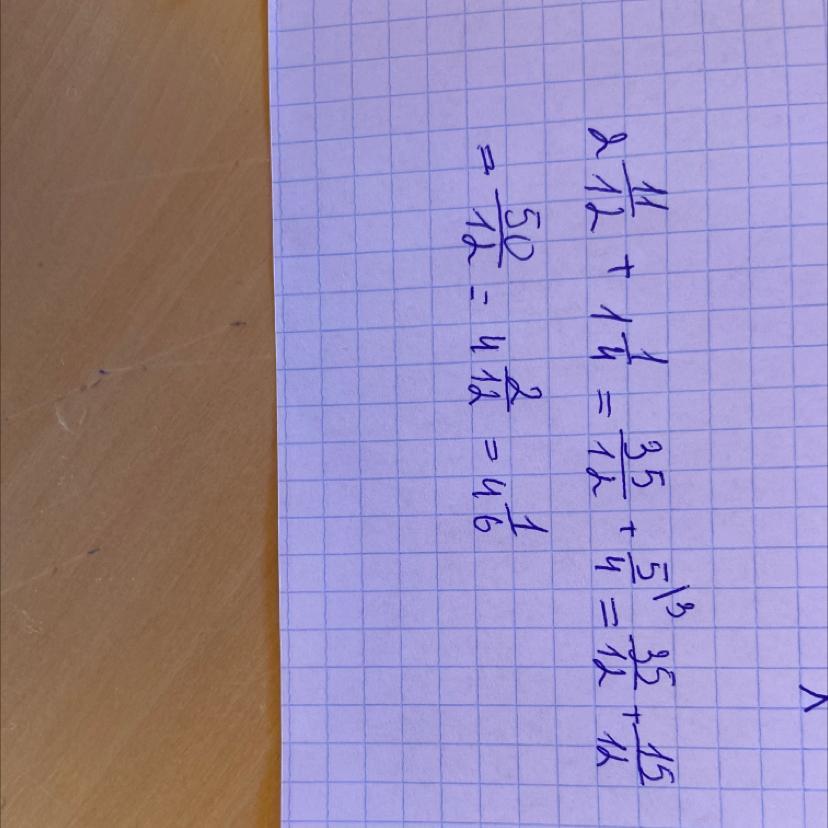 2 11/12 + 1 1/4 = 35/12 + 5/4 \3 = 35/12 + 15/12
= 50/12 = 4 2/12 = 4 1/6